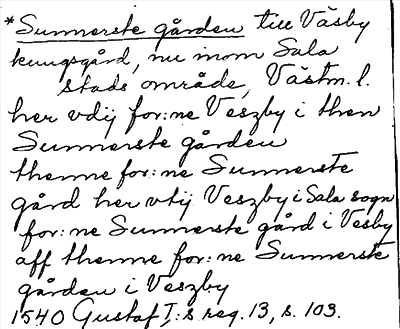 *Sunnerste gården till Väsby
kungsgård, nu inom Sala
stads område, Västm. l.
her vdij for:ne Veszby i then
Sunnerste gården
thenne for:ne Sunnerste
gård her vtij Veszby i Sala sogn
for:ne Sunnerste gård i Vesby
aff thenne for:ne Sunnerste
gården i Veszby
1540 Gustaf I:s reg. 13, s. 103.